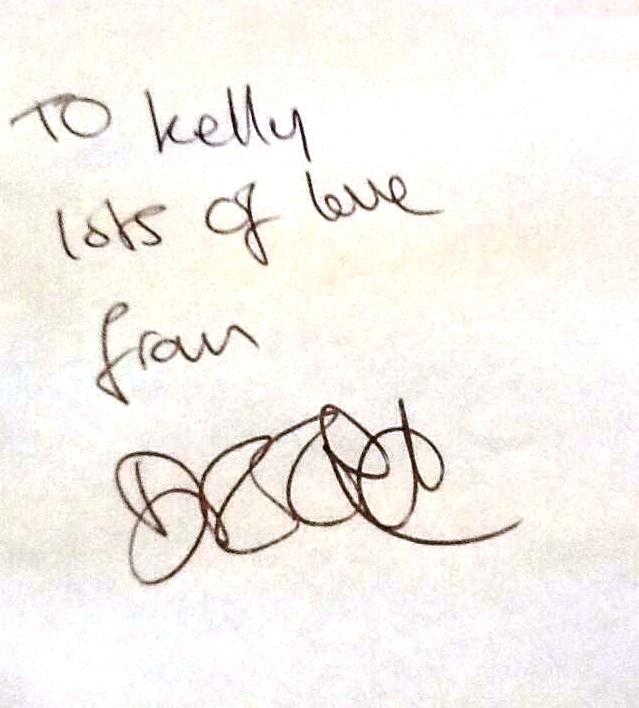 To Kelly
lots of love
from